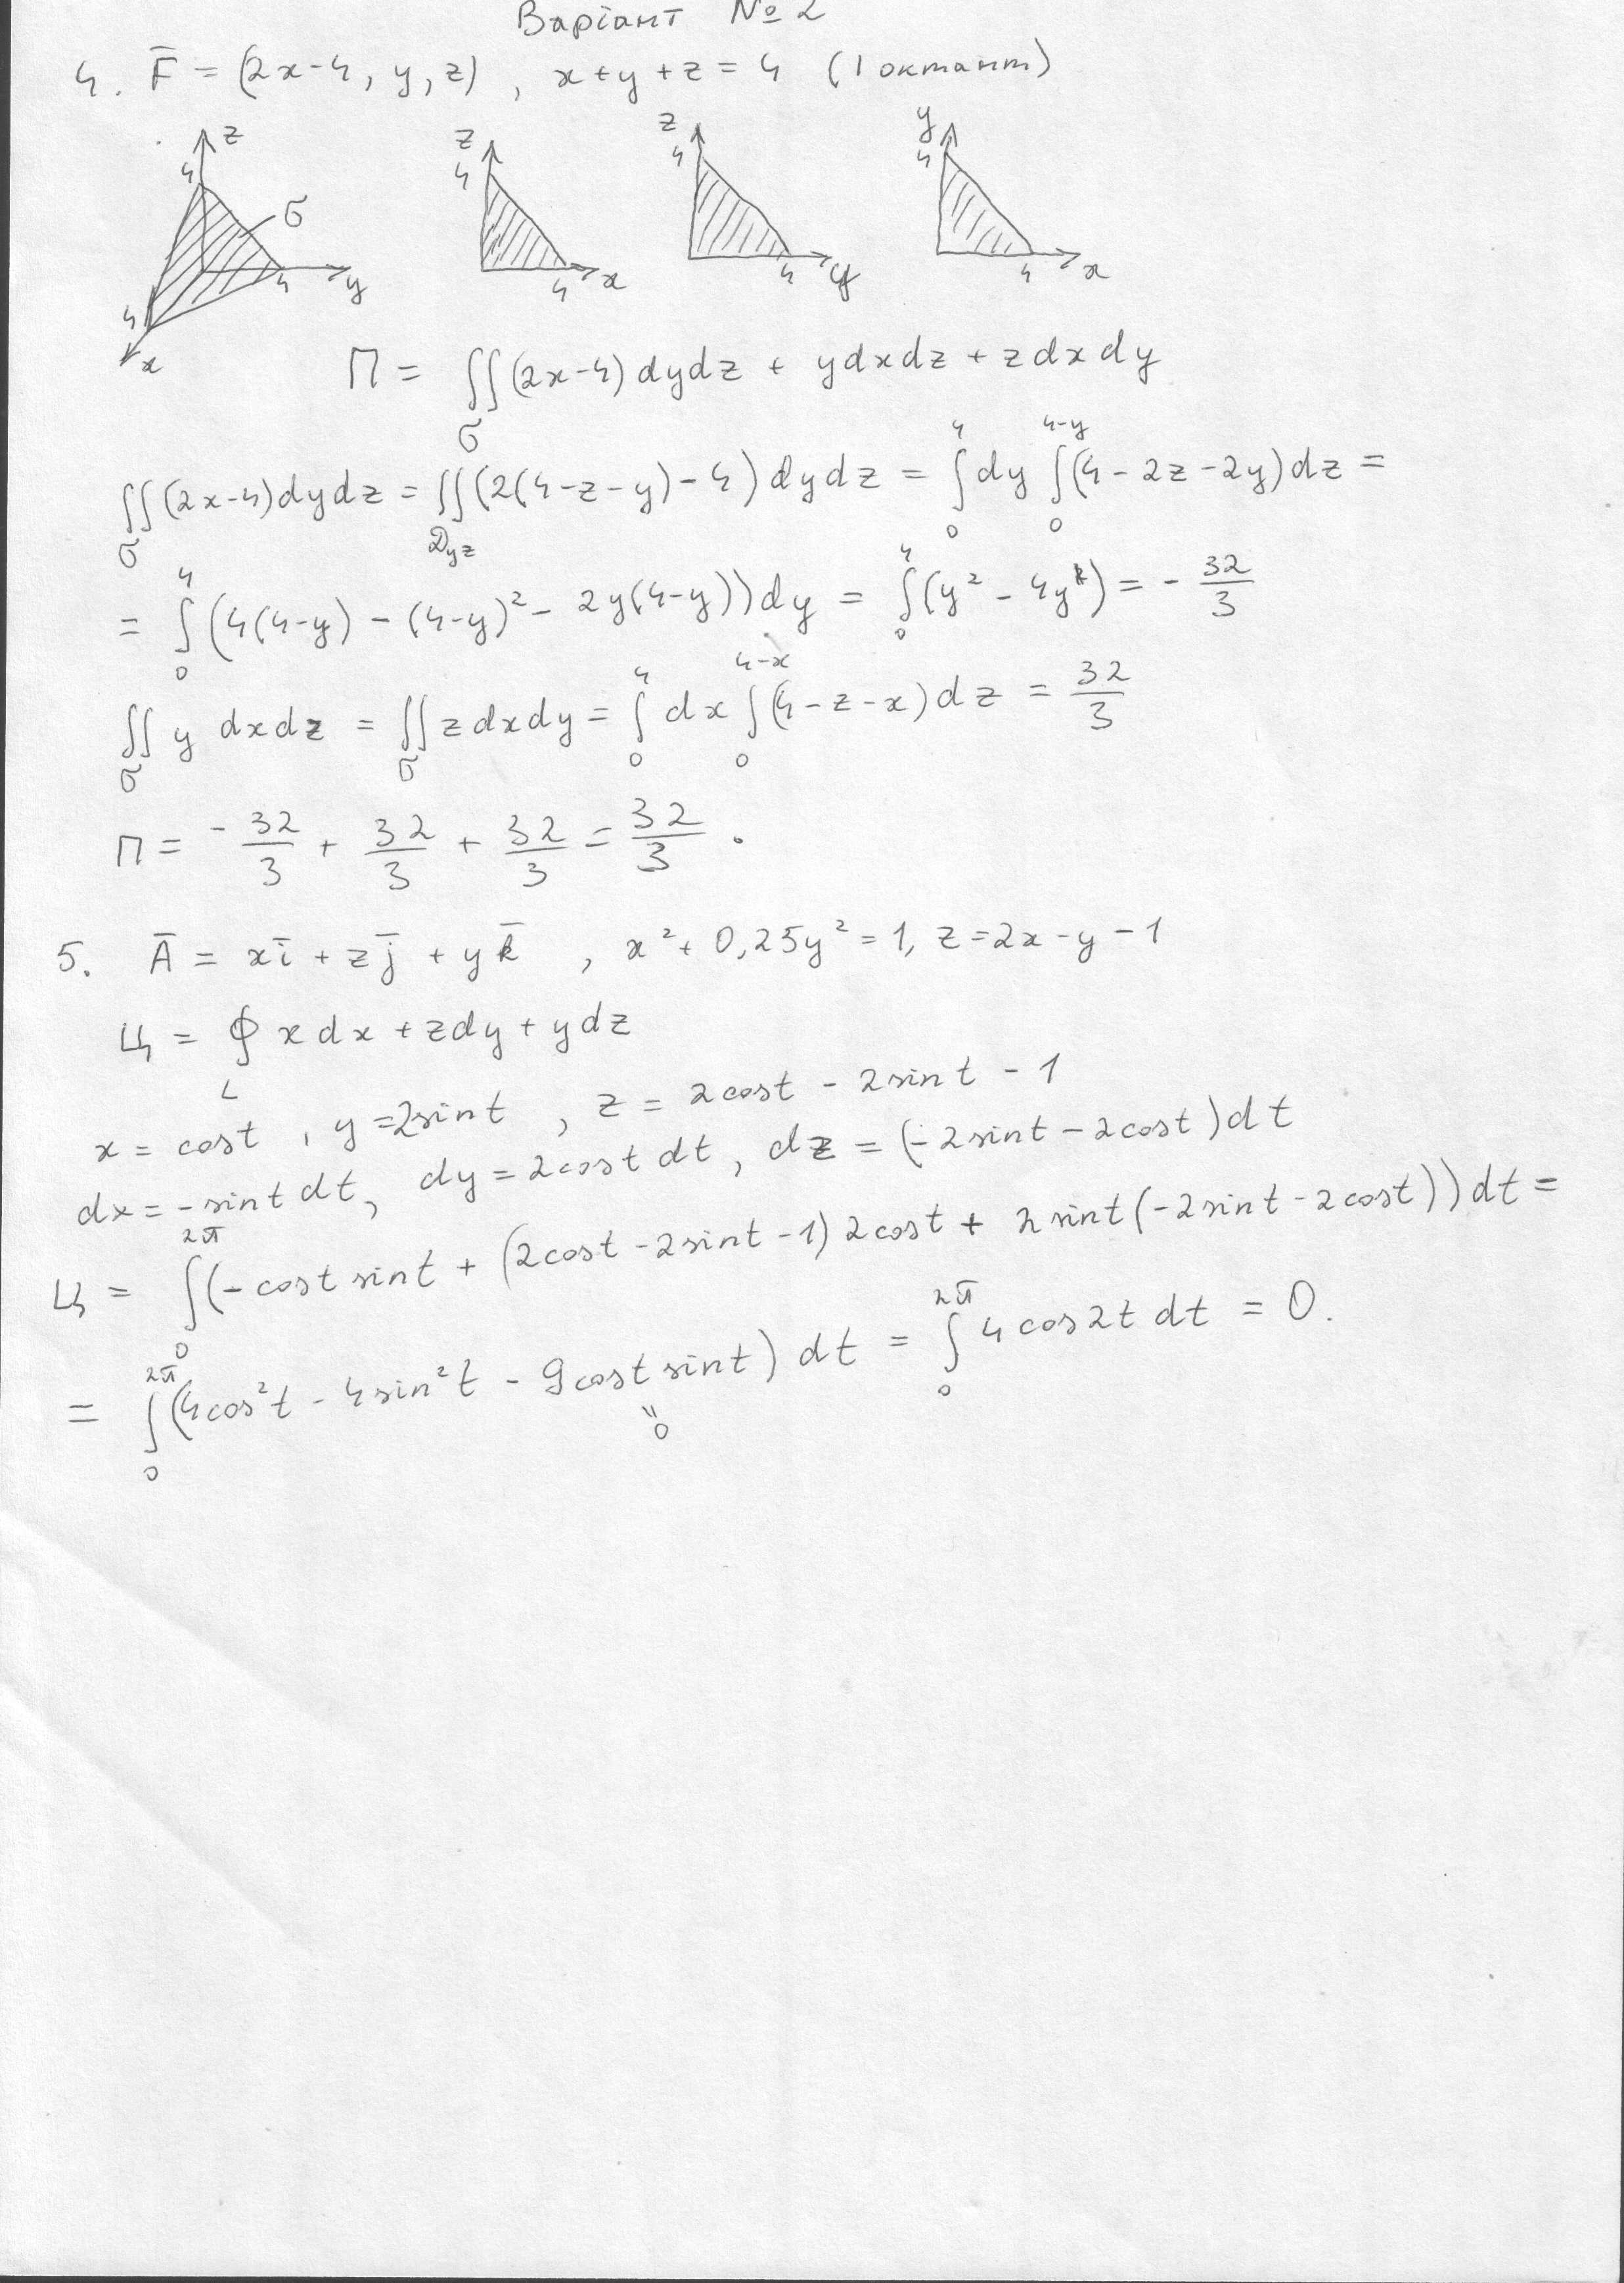 Варіант № 2
4. F̅ = (2x-4, y, z), x+y+z=4 (1 октант)
z z z y
4 4 4 4
σ
4 y 4 x 4 y 4 x
4
x
П = ∬_σ (2x-4)dydz + ydxdz + zdxdy
∬_σ (2x-4)dydz = ∬_{D_yz} (2(4-z-y)-4)dydz = ∫_0^4 dy ∫_0^{4-y} (4-2z-2y)dz =
= ∫_0^4 (4(4-y) - (4-y)² - 2y(4-y))dy = ∫_0^4 (y² - 4y) = - 32/3
∬_σ y dxdz = ∬_σ zdxdy = ∫_0^4 dx ∫_0^{4-x} (4-z-x)dz = 32/3
П = - 32/3 + 32/3 + 32/3 = 32/3 .
5. A̅ = xi̅ + zj̅ + yk̅ , x² + 0,25y² = 1, z=2x-y-1
Ц = ∮_L xdx + zdy + ydz
x = cost , y = 2sint , z = 2cost - 2sint - 1
dx = -sint dt, dy = 2cost dt, dz = (-2sint - 2cost)dt
Ц = ∫_0^{2π} (-cost sint + (2cost - 2sint - 1) 2cost + 2sint(-2sint - 2cost))dt =
= ∫_0^{2π} (4cos²t - 4sin²t - 9cost sint) dt = ∫_0^{2π} 4cos2t dt = 0.
"0